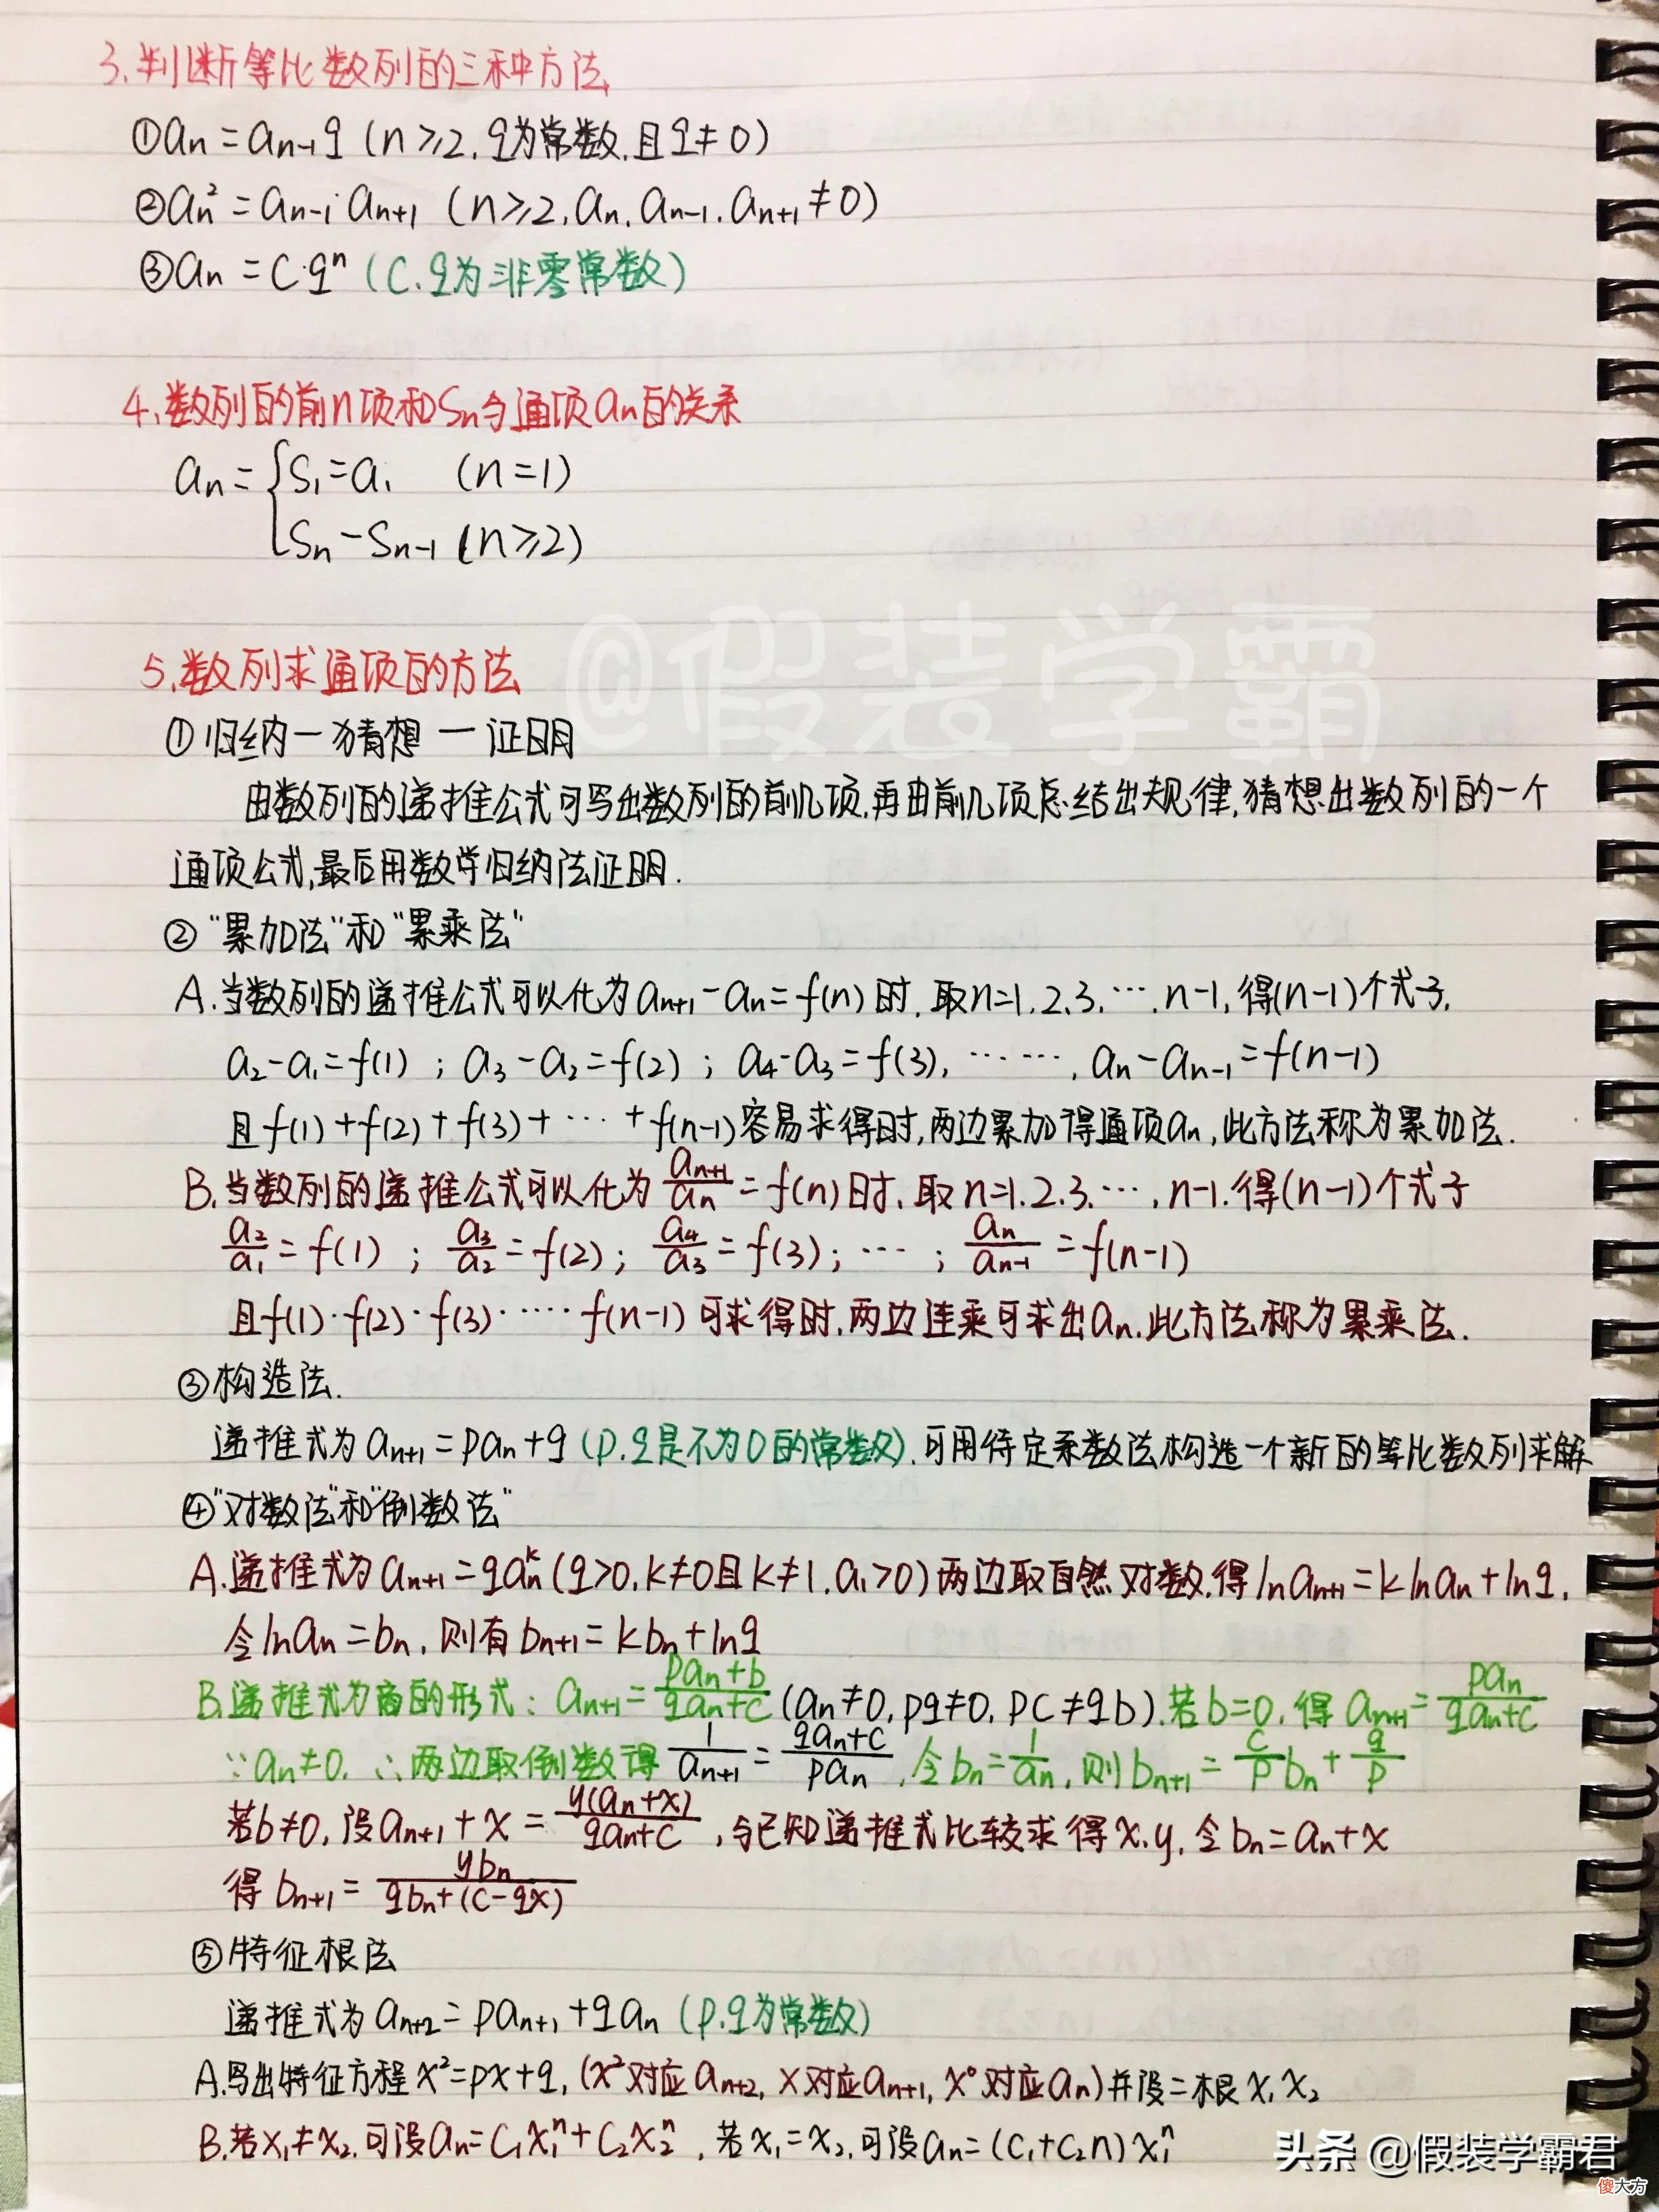 3.判断等比数列的三种方法
①an=an-1q(n≥2,q为常数,且q≠0)
②an²=an-1·an+1(n≥2,an,an-1,an+1≠0)
③an=C·qⁿ(C,q为非零常数)
4.数列的前n项和Sn与通项an的关系
an={S1=a1 (n=1)
Sn-Sn-1(n≥2)
@假装学霸
5.数列求通项的方法
①归纳—猜想—证明
由数列的递推公式可写出数列的前几项,再由前几项总结出规律,猜想出数列的一个
通项公式,最后用数学归纳法证明.
②"累加法"和"累乘法"
A.当数列的递推公式可以化为an+1-an=f(n)时,取n=1,2,3,…,n-1,得(n-1)个式子,
a2-a1=f(1);a3-a2=f(2);a4-a3=f(3),……,an-an-1=f(n-1)
且f(1)+f(2)+f(3)+…+f(n-1)容易求得时,两边累加得通项an,此方法称为累加法.
B.当数列的递推公式可以化为an+1/an=f(n)时,取n=1,2,3,…,n-1,得(n-1)个式子
a2/a1=f(1);a3/a2=f(2);a4/a3=f(3);…;an/an-1=f(n-1)
且f(1)·f(2)·f(3)·……f(n-1)可求得时,两边连乘可求出an,此方法称为累乘法.
③构造法.
递推式为an+1=pan+q(p,q是不为0的常数),可用待定系数法构造一个新的等比数列求解
④"对数法"和"倒数法"
A.递推式为an+1=qanᵏ(q>0,k≠0且k≠1,a1>0)两边取自然对数,得lnan+1=klnan+lnq,
令lnan=bn,则有bn+1=kbn+lnq
B.递推式为商的形式:an+1=(pan+b)/(qan+c)(an≠0,pq≠0,pc≠qb).若b=0,得an+1=pan/(qan+c)
∵an≠0,∴两边取倒数得1/an+1=(qan+c)/pan,令bn=1/an,则bn+1=c/p bn+q/p
若b≠0,设an+1+x=y(an+x)/(qan+c),与已知递推式比较求得x,y,令bn=an+x
得bn+1=ybn/(qbn+(c-qx))
⑤特征根法
递推式为an+2=pan+1+qan(p,q为常数)
A.写出特征方程x²=px+q,(x²对应an+2,x对应an+1,x⁰对应an)并设二根x1x2
B.若x1≠x2,可设an=C1x1ⁿ+C2x2ⁿ,若x1=x2,可设an=(C1+C2n)x1ⁿ
头条@假装学霸君
傻大方